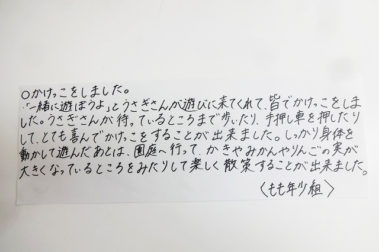 ○かけっこをしました。
「一緒に遊ぼうよ」とうさぎさんが遊びに来てくれて、皆でかけっこをしま
した。うさぎさんが待っているところまで歩いたり、手押し車を押したり
して、とても喜んでかけっこをすることが出来ました。しっかり身体を
動かして遊んだあとは、園庭へ行って、かきやみかんやりんごの実が
大きくなっているところをみたりして楽しく散策することが出来ました。
〈もも年少組〉